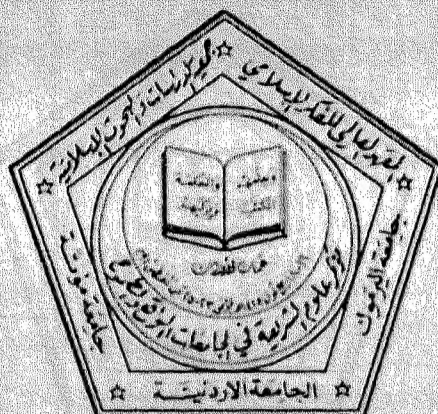 المعهد العالمي للفكر الإسلامي
جمعية الدراسات والبحوث الإسلامية
جامعة اليرموك
جامعة مؤتة
الجامعة الأردنية
ويعلمهم
الكتاب
والحكمة
ويزكيهم
مؤتمر علوم الشريعة في الجامعات الواقع والطموح